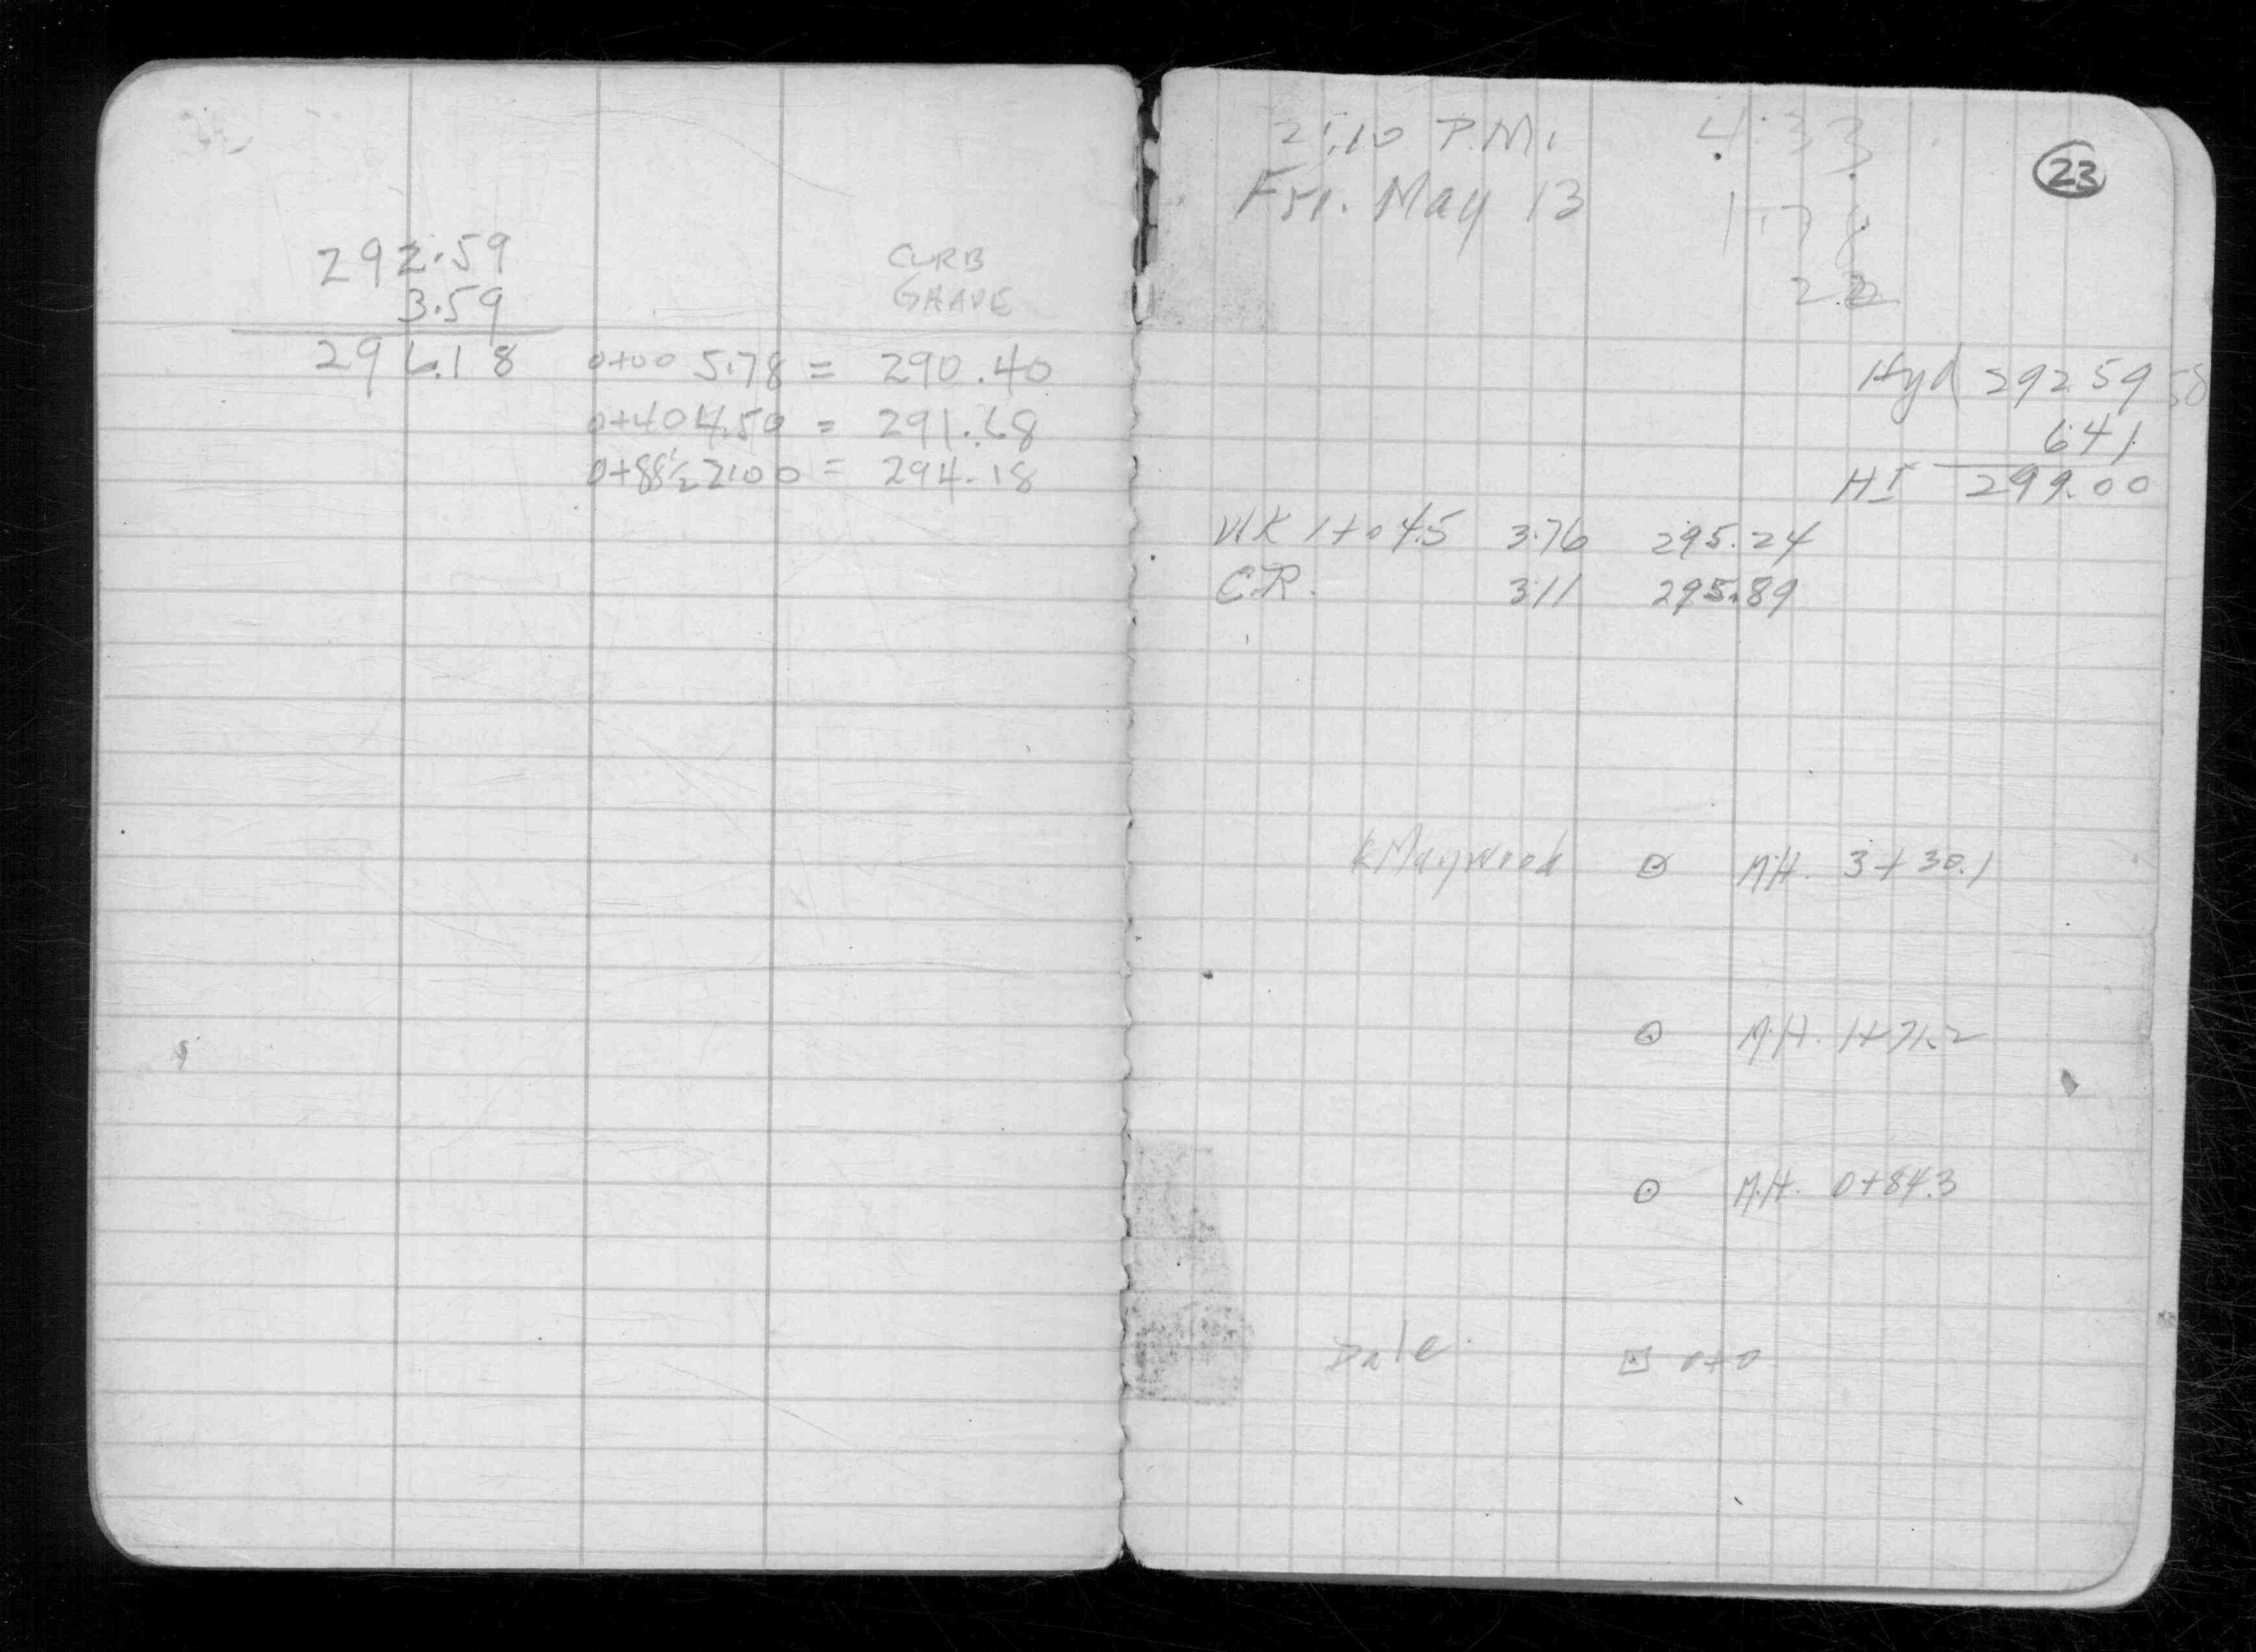 292.59
3.59
296.18
CURB
GRADE
0+00 5.78 = 290.40
0+40 4.50 = 291.68
0+88½ 2.00 = 294.18
2:10 P.M.
Fri. May 13
4.33
1.78
23
Hyd 292.59 58
6.41
HI 299.00
WK 1+04.5 3.76 295.24
C.R. 3.11 295.89
Maywood M.H. 3+30.1
M.H. 1+71.2
M.H. 0+84.3
Dale 0+0